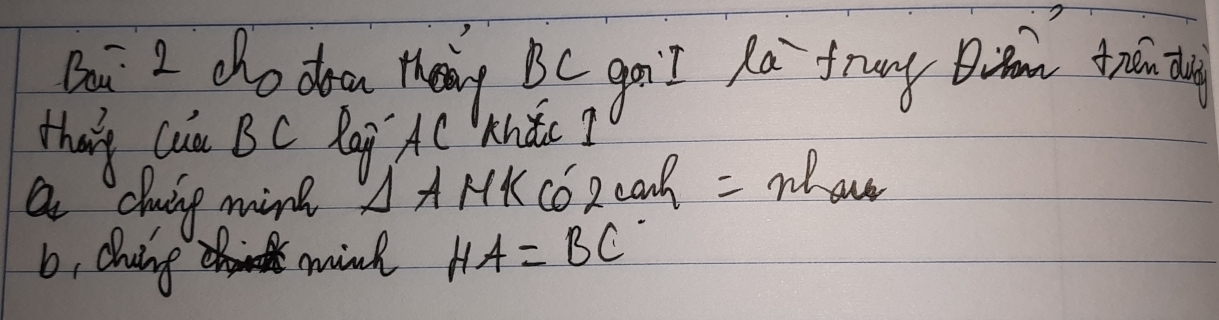 Bài 2 cho đoạn thẳng BC gọi I là trung Điểm trên đường
thẳng của BC lấy AC khác I
a, chứng minh Δ AHK có 2 cạnh = nhau
b, chứng minh HA = BC